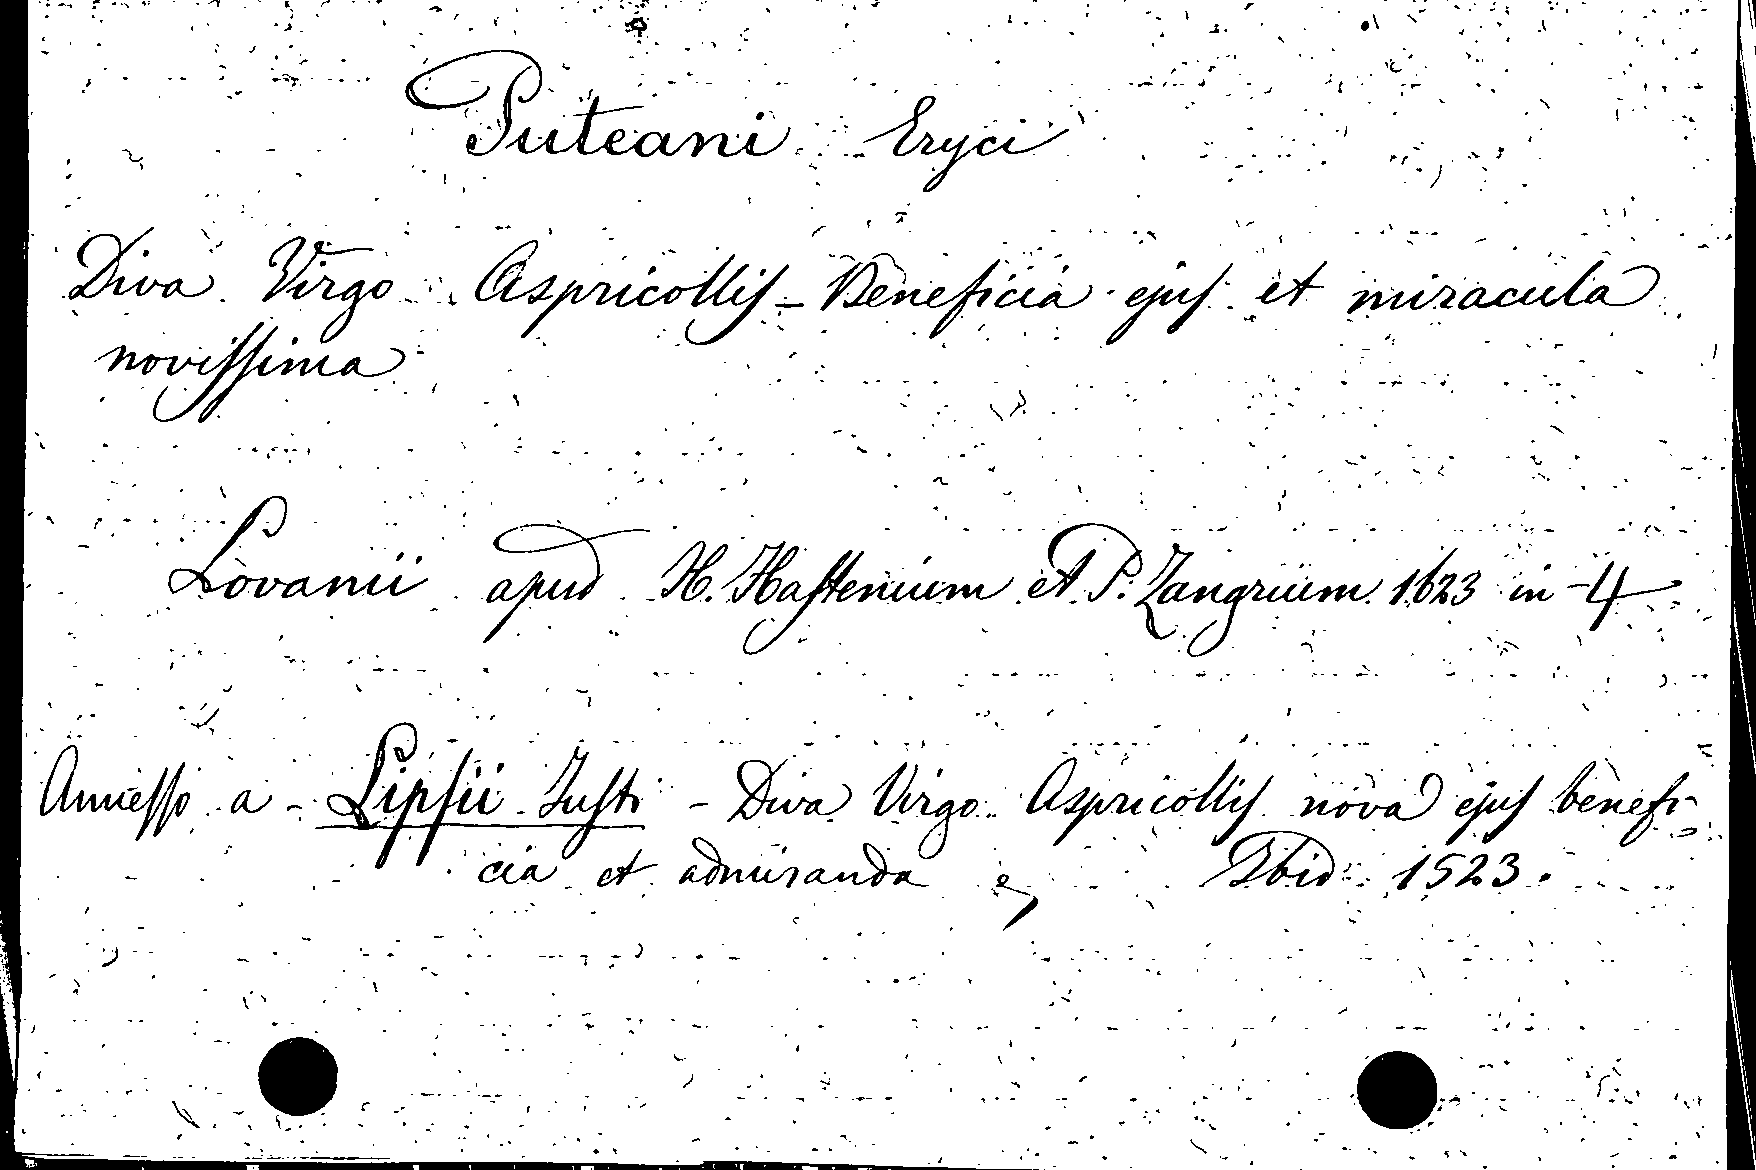 Puteani Eryci
Diva Virgo Aspricollis - Beneficia ejus et miracula
novissima
Lovanii apud H. Hastenium et P. Zangrium 1623 in-4
Annesso a - Lipsii Justi - Diva Virgo Aspricollis nova ejus benefi-
cia et admiranda Ibid 1523.